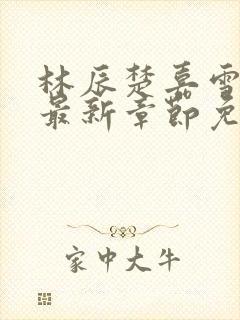 林辰楚嘉雪
最新章节免
家中大牛